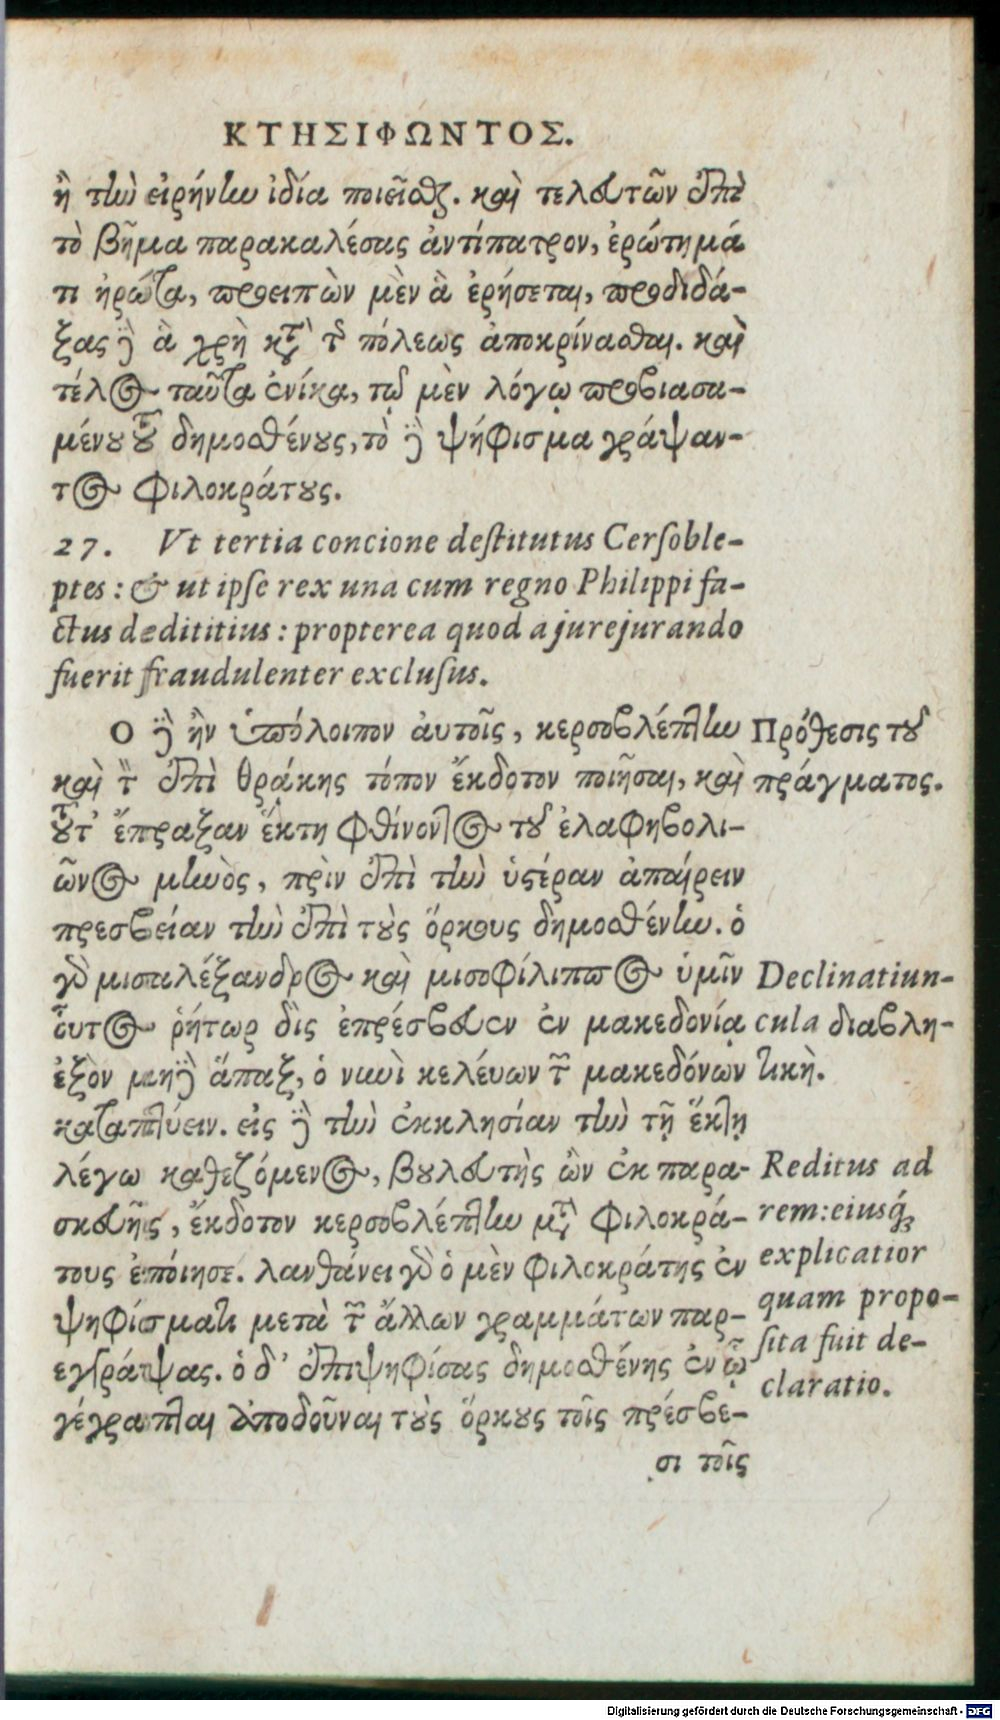 ΚΤΗΣΙΦΩΝΤΟΣ.
ἢ τὴν εἰρήνην ἰδία ποιεῖσθαι. καὶ τελευτῶν ἐπὶ
τὸ βῆμα παρακαλέσας ἀντίπατρον, ἐρώτημά
τι ἠρώτα, προειπὼν μὲν ἃ ἐρήσεται, προδιδά-
ξας δὲ ἃ χρὴ κατὰ τῆς πόλεως ἀποκρίνασθαι. καὶ
τέλος ταῦτα ἐνίκα, τῷ μὲν λόγῳ προβιασα-
μένου τοῦ δημοσθένους, τὸ δὲ ψήφισμα γράψαν-
τος Φιλοκράτους.
27. Vt tertia concione destitutus Cersoble-
ptes: & ut ipse rex una cum regno Philippi fa-
ctus dedititius: propterea quod a jurejurando
fuerit fraudulenter exclusus.
Ο δὲ ἦν ὑπόλοιπον αὐτοῖς, κερσοβλέπτην
καὶ τὸν ἐπὶ θρᾴκης τόπον ἔκδοτον ποιῆσαι, καὶ
τοῦτ' ἔπραξαν ἕκτῃ φθίνοντος τοῦ ἐλαφηβολι-
ῶνος μηνὸς, πρὶν ἐπὶ τὴν ὑστέραν ἀπαίρειν
πρεσβείαν τὴν ἐπὶ τοὺς ὅρκους δημοσθένην. ὁ
γὰρ μισαλέξανδρος καὶ μισοφίλιππος ὑμῖν
οὗτος ῥήτωρ δὶς ἐπρέσβευσεν ἐν μακεδονίᾳ
ἐξὸν μηδὲ ἅπαξ, ὁ νυνὶ κελεύων τῶν μακεδόνων
καταπτύειν. εἰς δὲ τὴν ἐκκλησίαν τὴν τῇ ἕκτῃ
λέγω καθεζόμενος, βουλευτὴς ὢν ἐκ παρα-
σκευῆς, ἔκδοτον κερσοβλέπτην μετὰ Φιλοκρά-
τους ἐποίησε. λανθάνει γὰρ ὁ μὲν Φιλοκράτης ἐν
ψηφίσματι μετὰ τῶν ἄλλων γραμμάτων παρ-
εγγράψας. ὁ δ' ἐπιψηφίσας δημοσθένης ἐν ᾧ
γέγραπται ἀποδοῦναι τοὺς ὅρκους τοῖς πρέσβε-
σι τοῖς
Πρόθεσις τοῦ
πράγματος.
Declinatiun-
cula διαβλη-
τικὴ.
Reditus ad
rem: eiusq́;
explicatior
quam propo-
sita fuit de-
claratio.
Digitalisierung gefördert durch die Deutsche Forschungsgemeinschaft - DFG